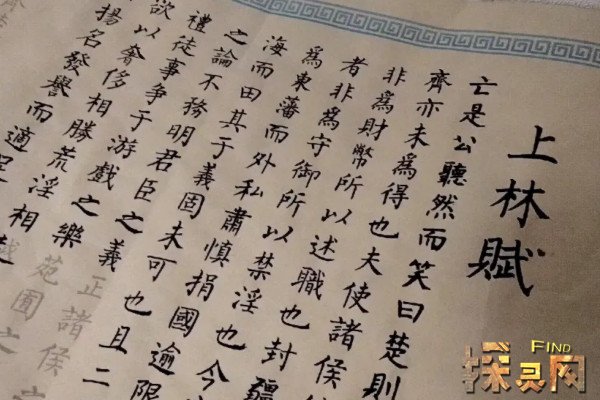 上林賦
亡是公聽然而笑曰楚則
齊亦未為得也夫使諸侯
非為財幣所以述職也封疆
者非為守御所以禁淫也今
為東藩而外私肅慎捐國逾限
海而田其于義固未可也且二
之論不務明君臣之義正諸侯
禮徒事爭于游戲之樂苑囿之
欲以奢侈相勝荒淫相越
揚名發譽而適足
FIND
探灵网